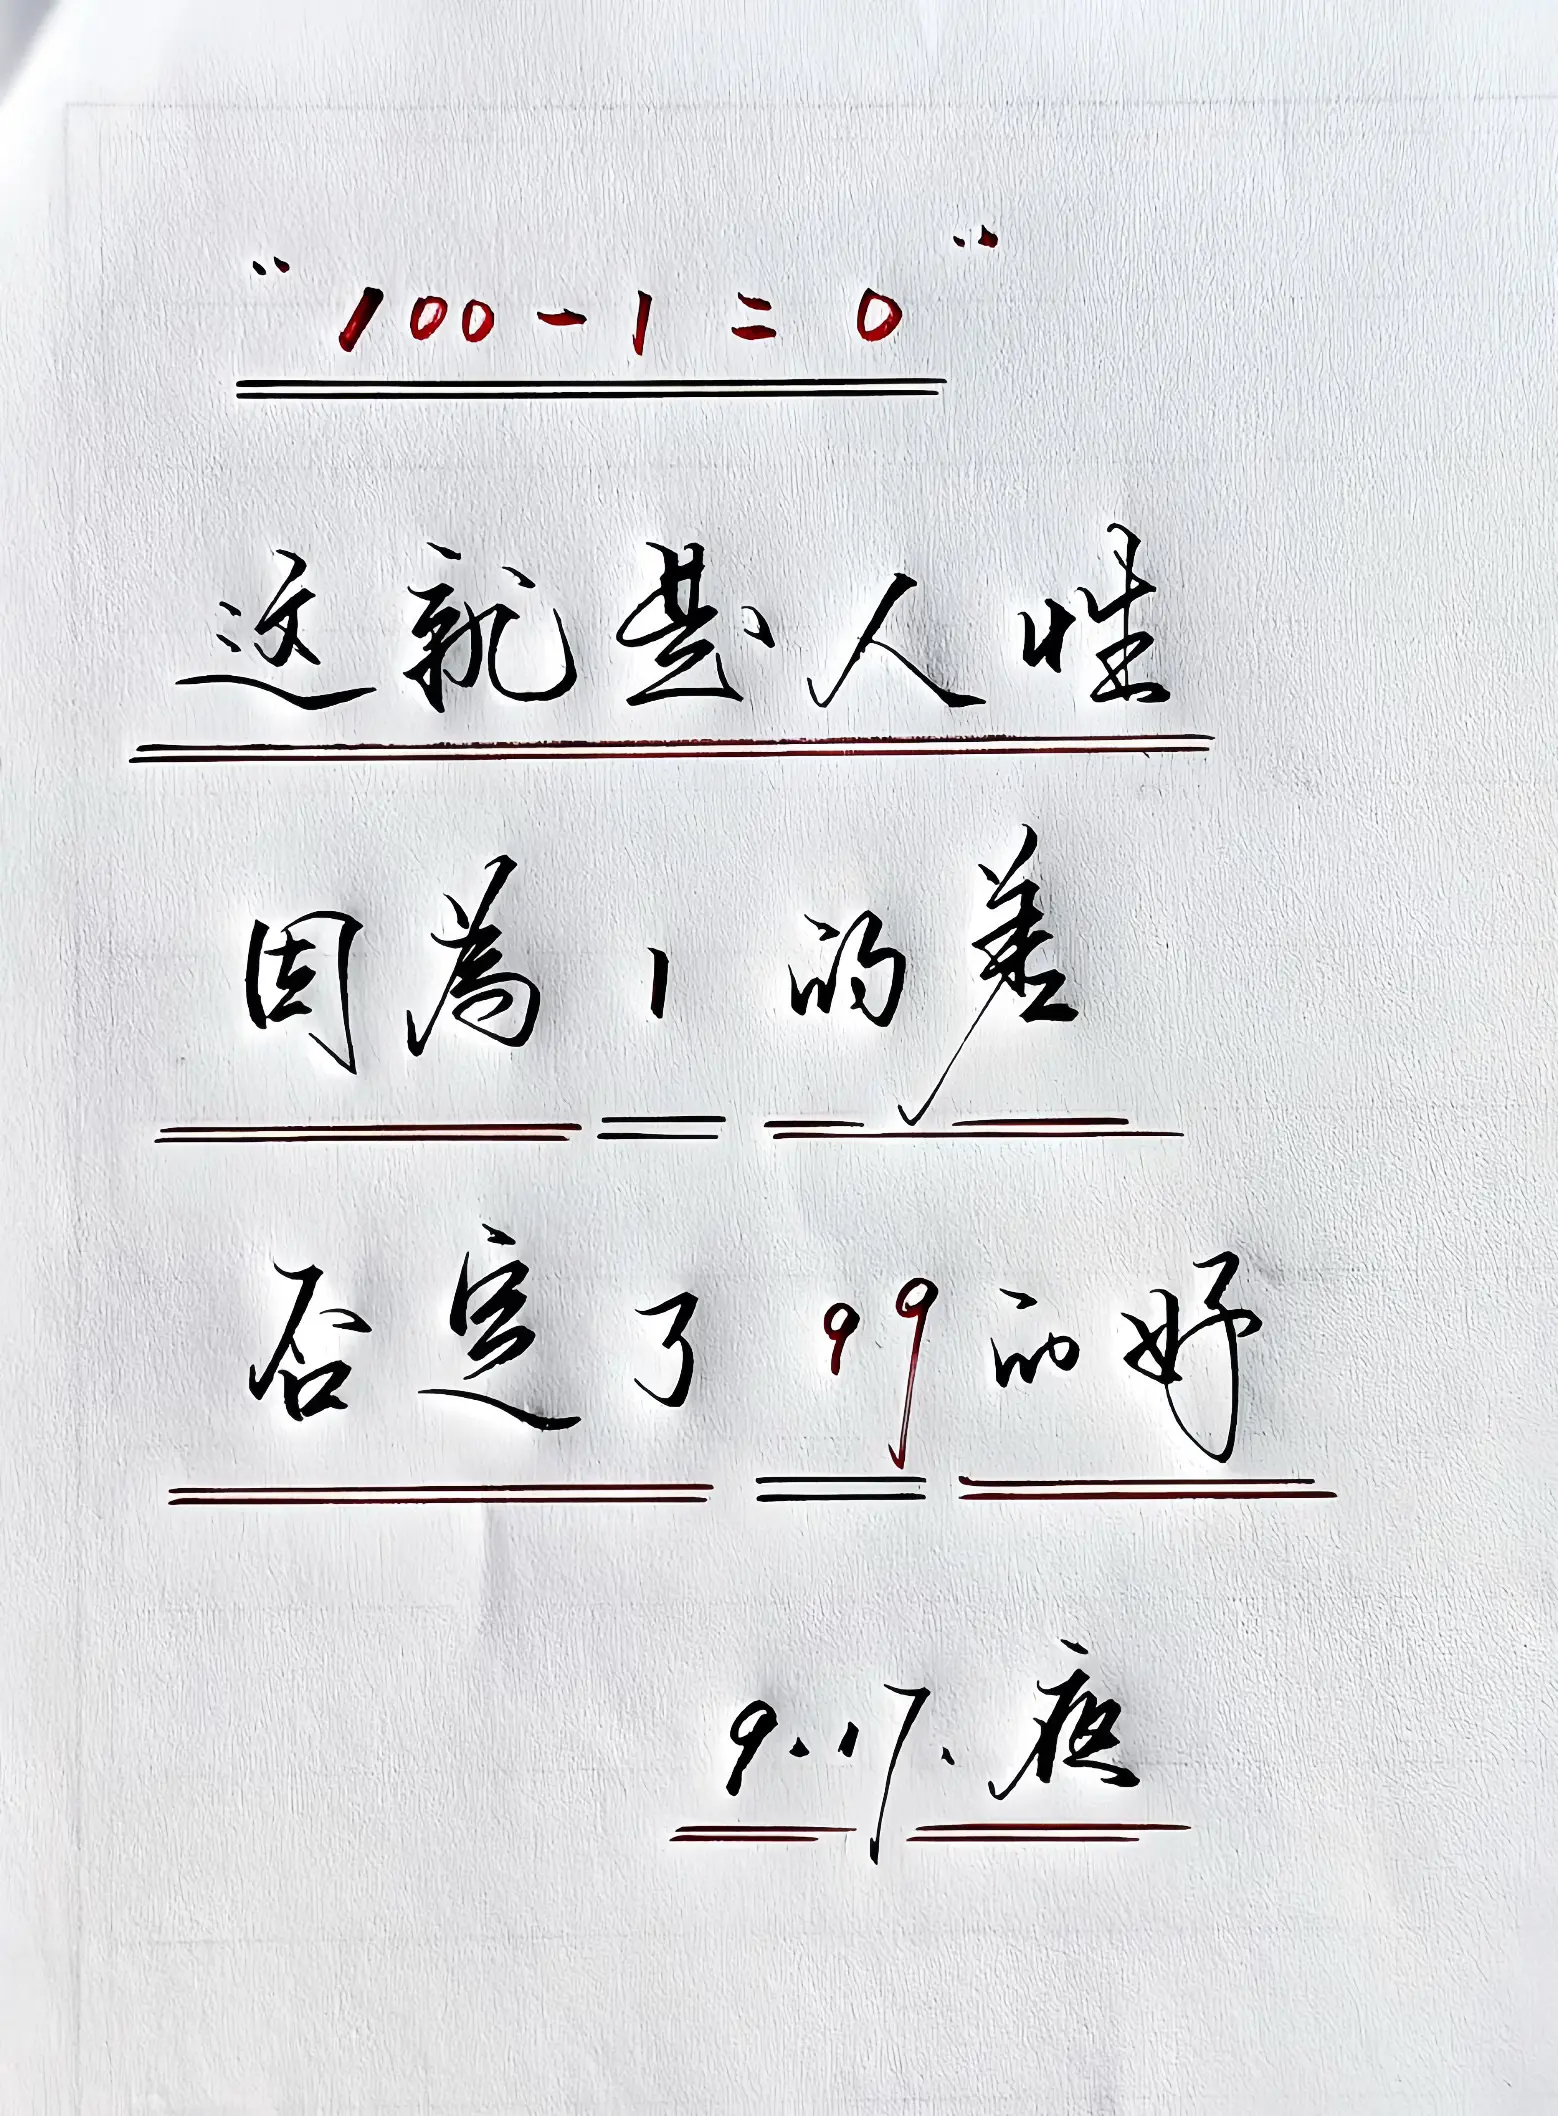 “100-1=0”
这就是人性
因为1的差
否定了99的好
9.17.夜